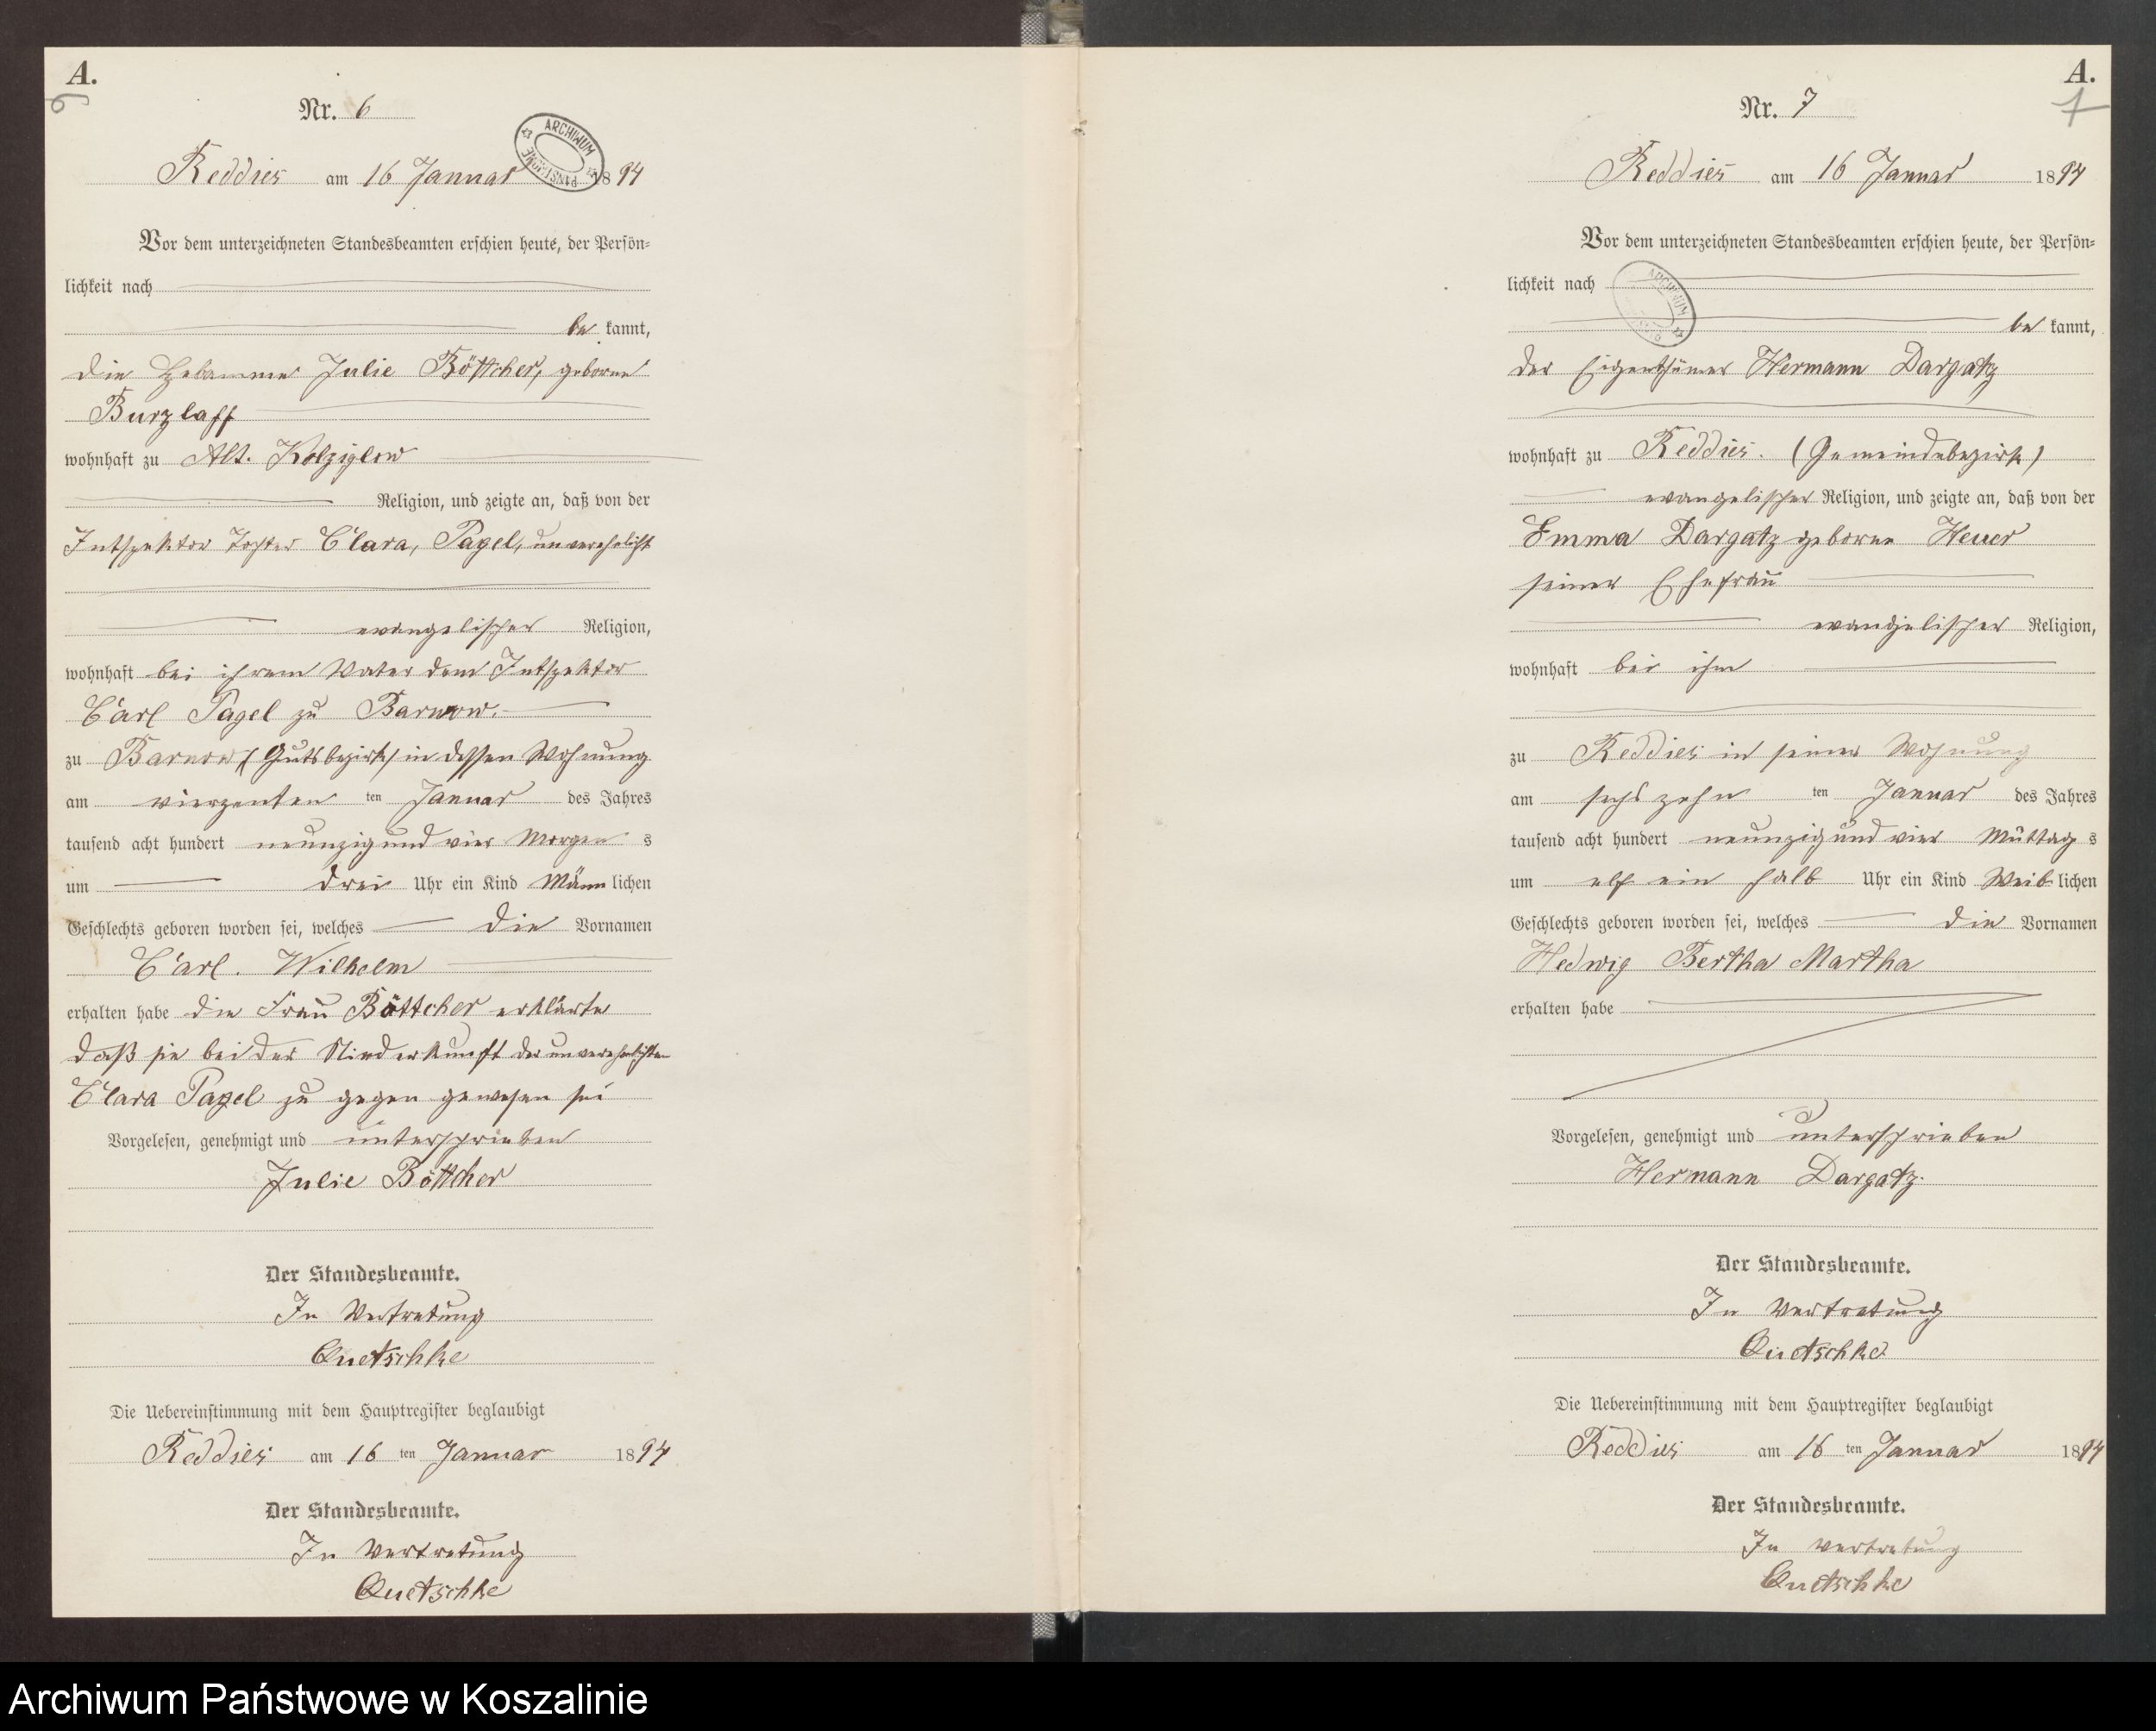 A.
6
Nr. 6
ARCHIWUM
Reddies am 16 Januar 1894
Vor dem unterzeichneten Standesbeamten erschien heute, der Persön-
lichkeit nach
be kannt,
die Hebamme Julie Böttcher, geborne
Burzlaff
wohnhaft zu Alt. Kolziglow
Religion, und zeigte an, daß von der
Intspektor Tochter Clara, Pagel, unverehelicht
evangelischer Religion,
wohnhaft bei ihrem Vater dem Intspektor
Carl Pagel zu Barnow.
zu Barnow (Gutsbezirk) in dessen Wohnung
am vierzenten ten Januar des Jahres
tausend acht hundert neunzig und vier Morgen s
um drei Uhr ein Kind Männ lichen
Geschlechts geboren worden sei, welches die Vornamen
Carl. Wilhelm
erhalten habe die Frau Böttcher erklärte
daß sie bei der Niederkunft der unverehelichten
Clara Pagel zu gegen gewesen sei
Vorgelesen, genehmigt und unterschrieben
Julie Böttcher
Der Standesbeamte.
In Vertretung
Quetschke
Die Uebereinstimmung mit dem Hauptregister beglaubigt
Reddies am 16 ten Januar 1894
Der Standesbeamte.
In Vertretung
Quetschke
A.
7
Nr. 7
Reddies am 16 Januar 1894
Vor dem unterzeichneten Standesbeamten erschien heute, der Persön-
lichkeit nach
ARCHIWUM
be kannt,
der Eigenthümer Hermann Dargatz
wohnhaft zu Reddies. (Gemeindebezirk)
evangelischer Religion, und zeigte an, daß von der
Emma Dargatz geborne Heuer
seiner Ehefrau
evangelischer Religion,
wohnhaft bei ihm
zu Reddies in seiner Wohnung
am sechszehn ten Januar des Jahres
tausend acht hundert neunzig und vier Müttag s
um elf ein halb Uhr ein Kind Weib lichen
Geschlechts geboren worden sei, welches die Vornamen
Hedwig Bertha Martha
erhalten habe
Vorgelesen, genehmigt und unterschrieben
Hermann Dargatz.
Der Standesbeamte.
In Vertretung
Quetschke
Die Uebereinstimmung mit dem Hauptregister beglaubigt
Reddies am 16 ten Januar 1894
Der Standesbeamte.
In Vertretung
Quetschke
Archiwum Państwowe w Koszalinie